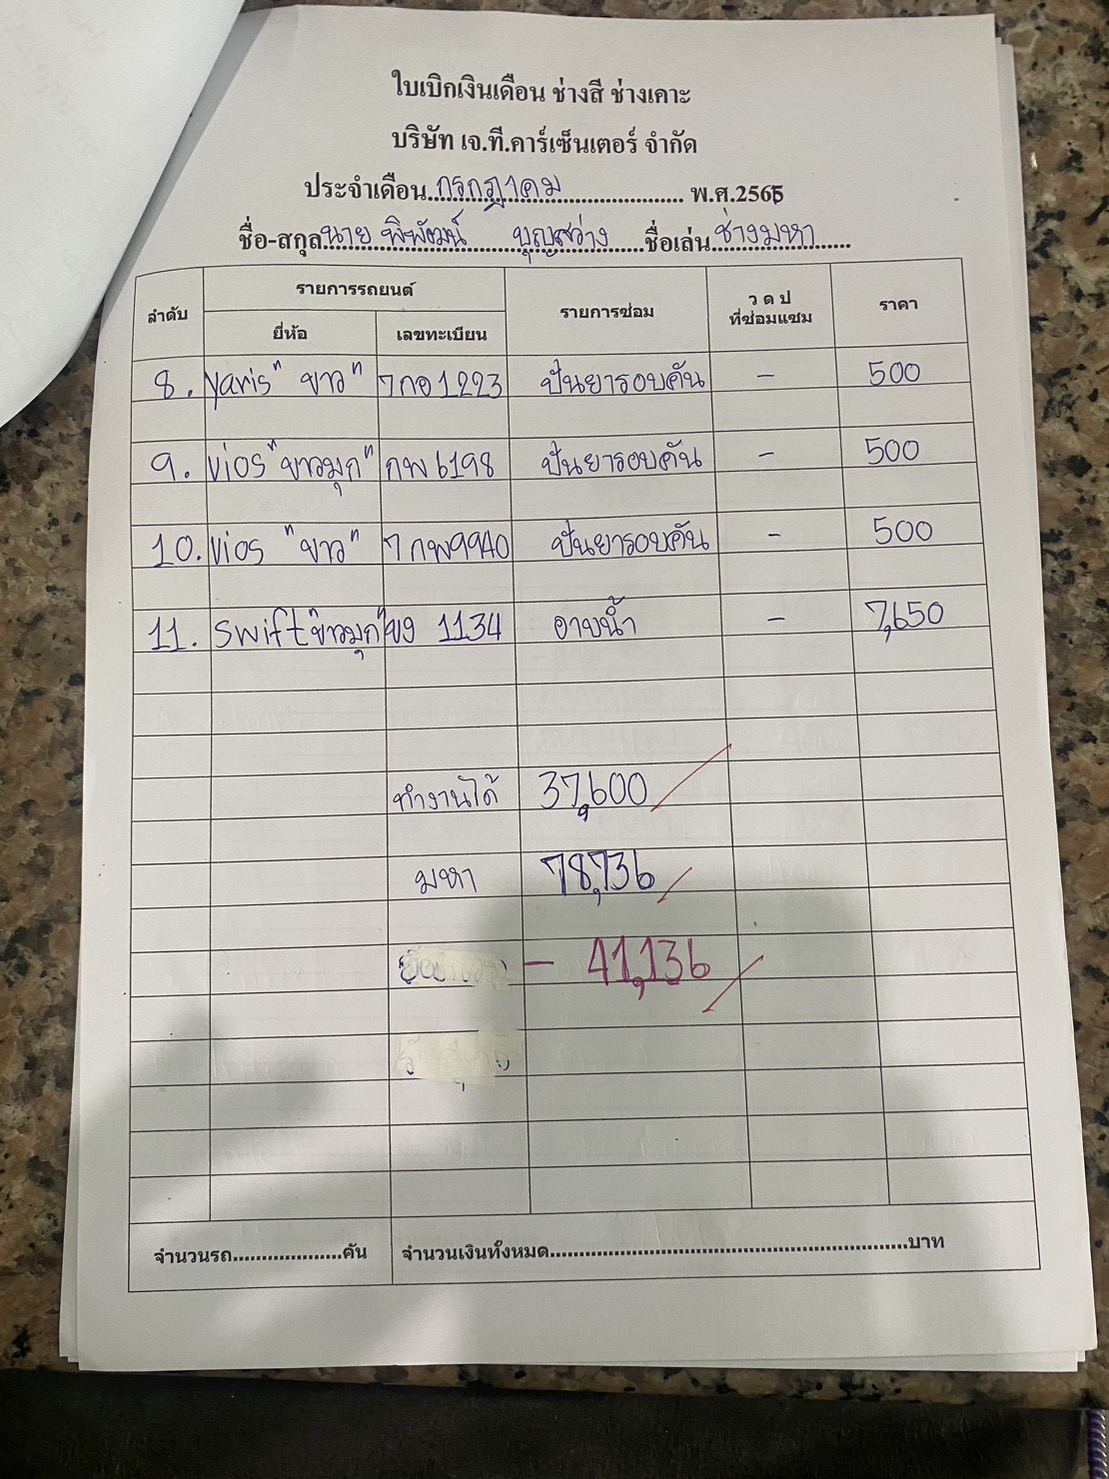 ใบเบิกเงินเดือน ช่างสี ช่างเคาะ
บริษัท เจ.ที.คาร์เซ็นเตอร์ จำกัด
ประจำเดือน..กรกฎาคม.................... พ.ศ.2565
ชื่อ-สกุล นาย พิพัฒน์ บุญสว่าง ......ชื่อเล่น ช่างมหา......
ลำดับ รายการรถยนต์ รายการซ่อม ว ด ป ที่ซ่อมแซม ราคา
ยี่ห้อ เลขทะเบียน
8. yaris "ขาว" 7กอ1223 ปั่นยารอบคัน - 500
9. vios "ขาวมุก" กพ6198 ปั่นยารอบคัน - 500
10. vios "ขาว" 7กพ9940 ปั่นยารอบคัน - 500
11. swift "ขาวมุก" ขง 1134 อาบน้ำ - 7,650
ทำงานได้ 37,600
มหา 78,736
- 41,136
จำนวนรถ...................คัน จำนวนเงินทั้งหมด..............................................................บาท